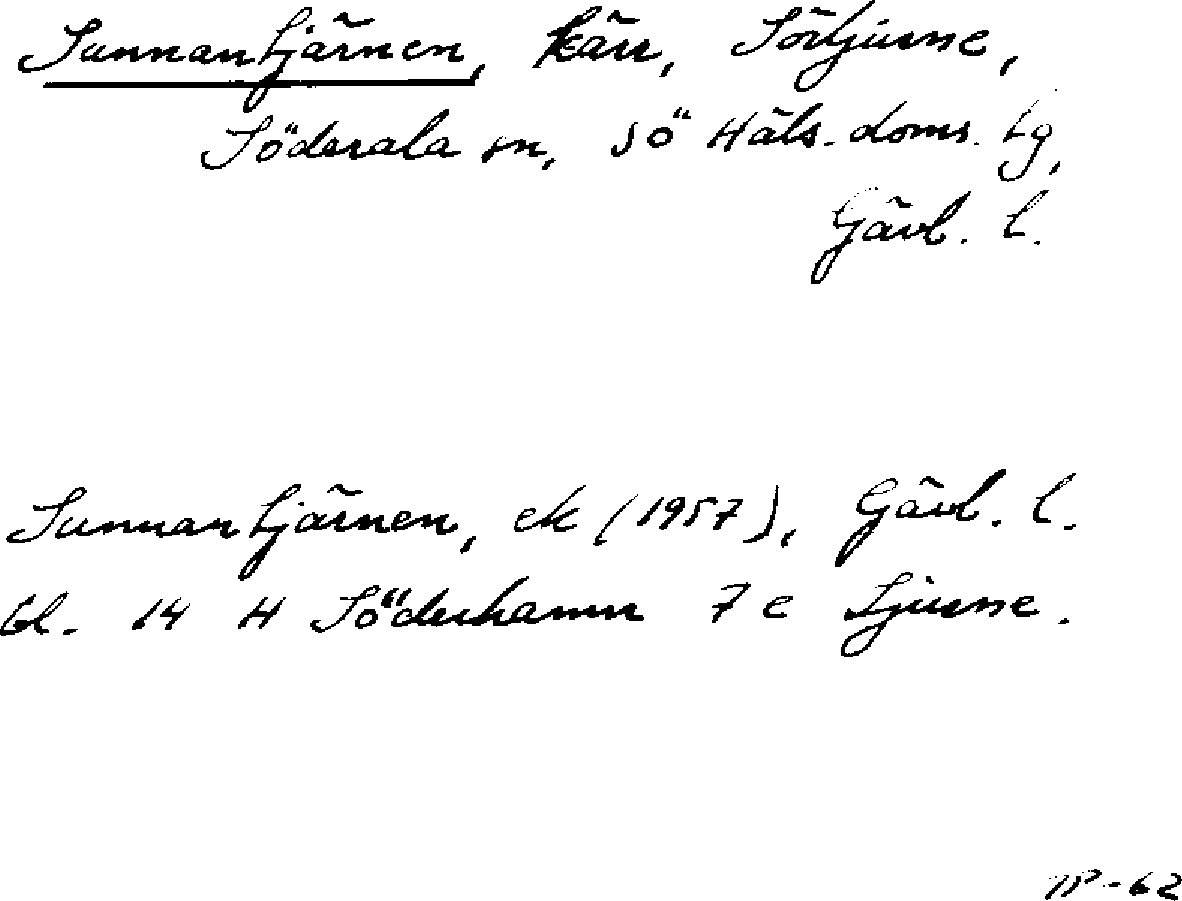 Sunnantjärnen, kärr, Sörljusne,
Söderala sn, Sö Häls. doms. tg,
Gävl. l.
Sunnantjärnen, ek (1957), Gävl. l.
bl. 14 H Söderhamn 7 e Ljusne.
-62